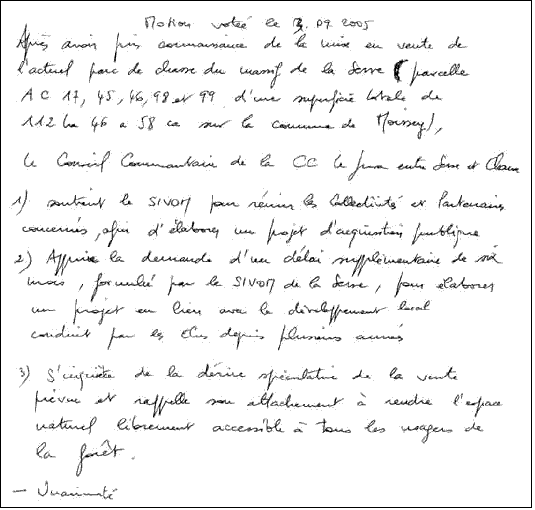 Motion votée le 3.09.2005
Après avoir pris connaissance de la mise en vente de
l'actuel parc de chasse du massif de la Serre (parcelle
AC 17, 45, 46, 98 et 99 d'une superficie totale de
112 ha 46 a 58 ca sur la commune de Moissey),
le Conseil Communautaire de la CC le Jura entre Serre et Chaux
1) soutient le SIVOM pour réunir les collectivités et Partenaires
concernés, afin d'élaborer un projet d'acquisition publique
2) Appuie la demande d'un délai supplémentaire de six
mois, formulée par le SIVOM de la Serre, pour élaborer
un projet en lien avec le développement local
conduit par les élus depuis plusieurs années
3) S'inquiète de la dérive spéculative de la vente
prévue et rappelle son attachement à rendre l'espace
naturel librement accessible à tous les usagers de
la forêt.
- Unanimité